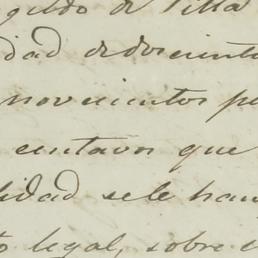 gildo de Villa
idad de doscientos
novecientos pe
centavos que
lidad se le han
to legal, sobre e